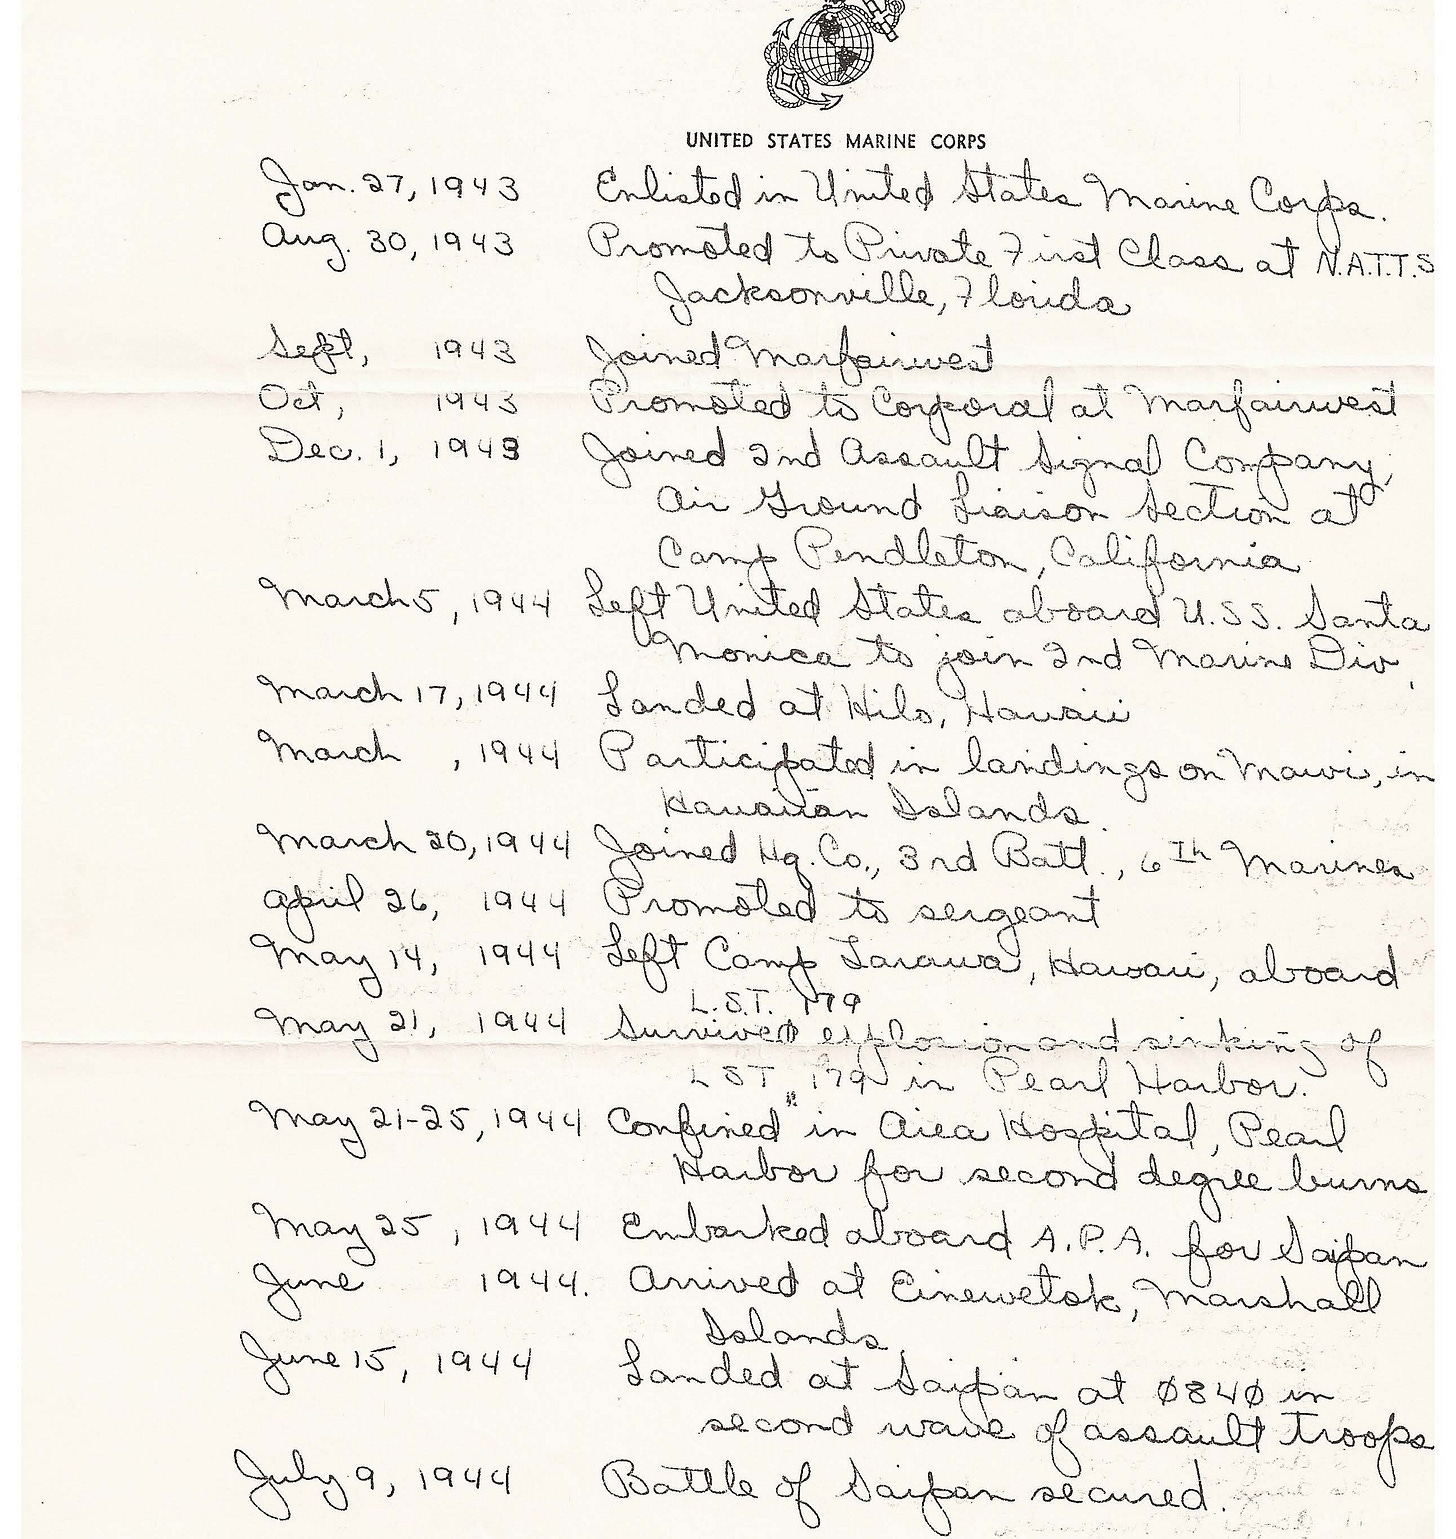 UNITED STATES MARINE CORPS
Jan. 27, 1943 Enlisted in United States Marine Corps.
Aug. 30, 1943 Promoted to Private First Class at N.A.T.T.S
Jacksonville, Florida
Sept, 1943 Joined Marfairwest
Oct, 1943 Promoted to Corporal at Marfairwest
Dec. 1, 1943 Joined 2nd Assault Signal Company,
Air Ground Liaison Section at
Camp Pendleton, California
March 5, 1944 Left United States aboard U.S.S. Santa
Monica to join 2nd Marine Div.
March 17, 1944 Landed at Hilo, Hawaii
March , 1944 Participated in landings on Mawi, in
Hawaiian Islands.
March 20, 1944 Joined Hq. Co., 3rd Batt., 6th Marines
April 26, 1944 Promoted to sergeant
May 14, 1944 Left Camp Tarawa, Hawaii, aboard
L.S.T. 179
May 21, 1944 Survived explosion and sinking of
LST 179 in Pearl Harbor.
May 21-25, 1944 Confined in Aiea Hospital, Pearl
Harbor for second degree burns
May 25, 1944 Embarked aboard A.P.A. for Saipan
June 1944. Arrived at Einewetok, Marshall
Islands.
June 15, 1944 Landed at Saipan at 0840 in
second wave of assault troops
July 9, 1944 Battle of Saipan secured.